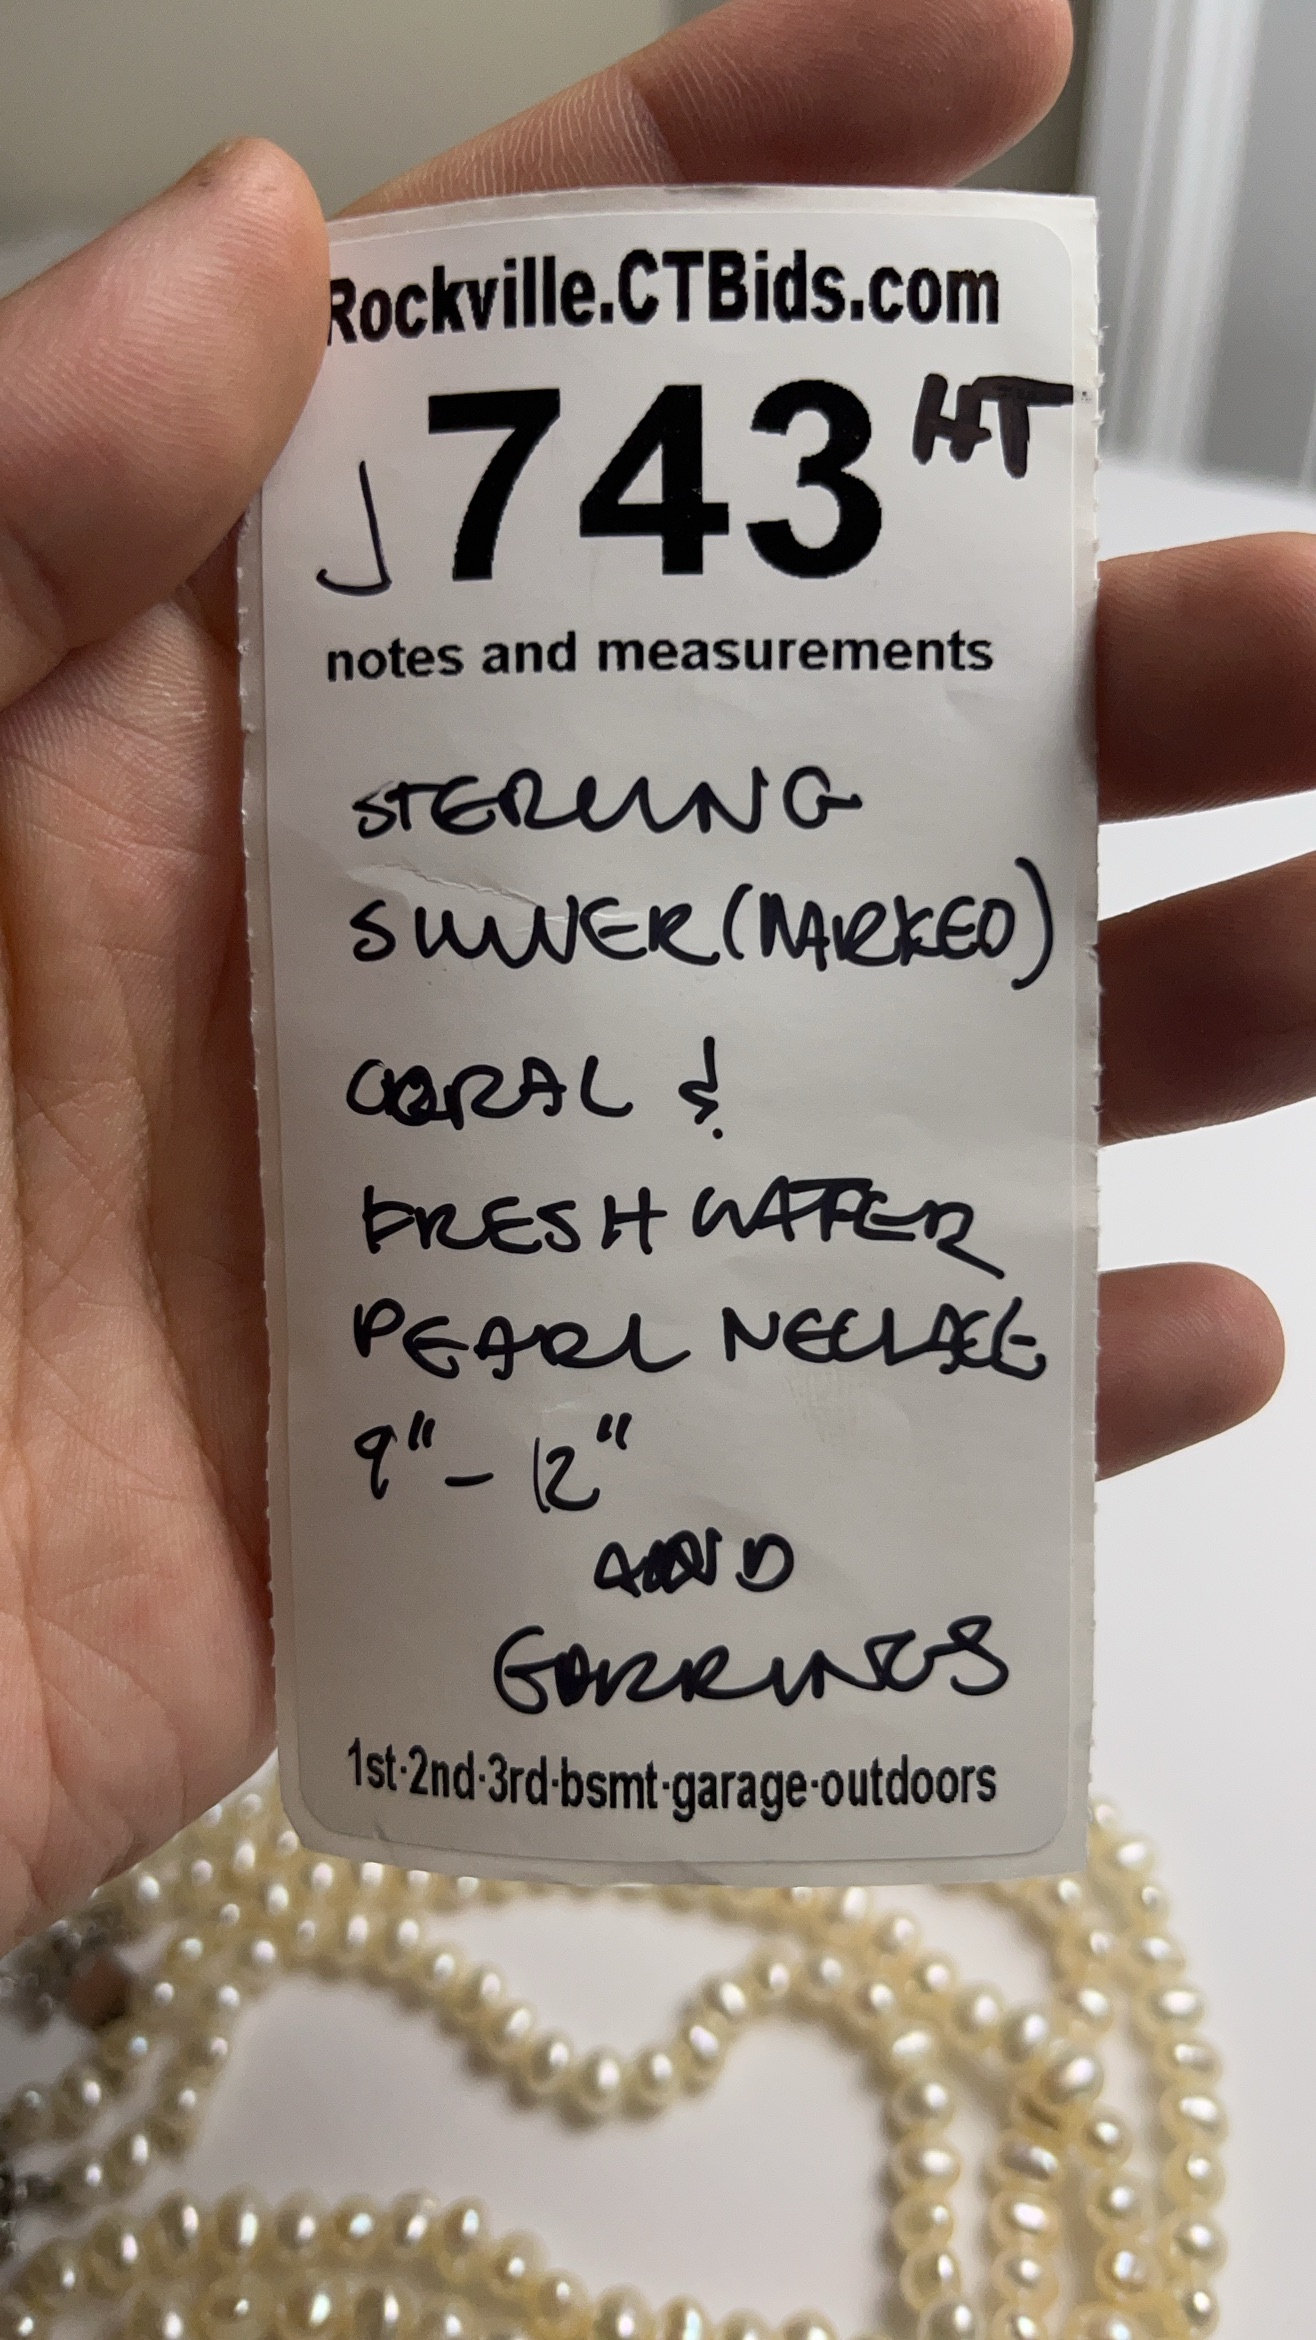 Rockville.CTBids.com
J 743 HT
notes and measurements
STERLING
SILVER (MARKED)
CORAL &
FRESHWATER
PEARL NECLACE
9" - 12"
AND
EARRINGS
1st·2nd·3rd·bsmt·garage·outdoors